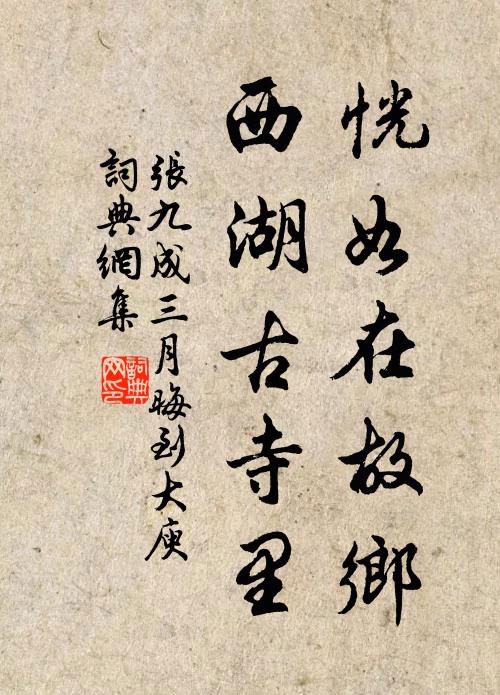 恍如在故鄉
西湖古寺里
張九成三月晦到大庾
詞典網集
詞典网印